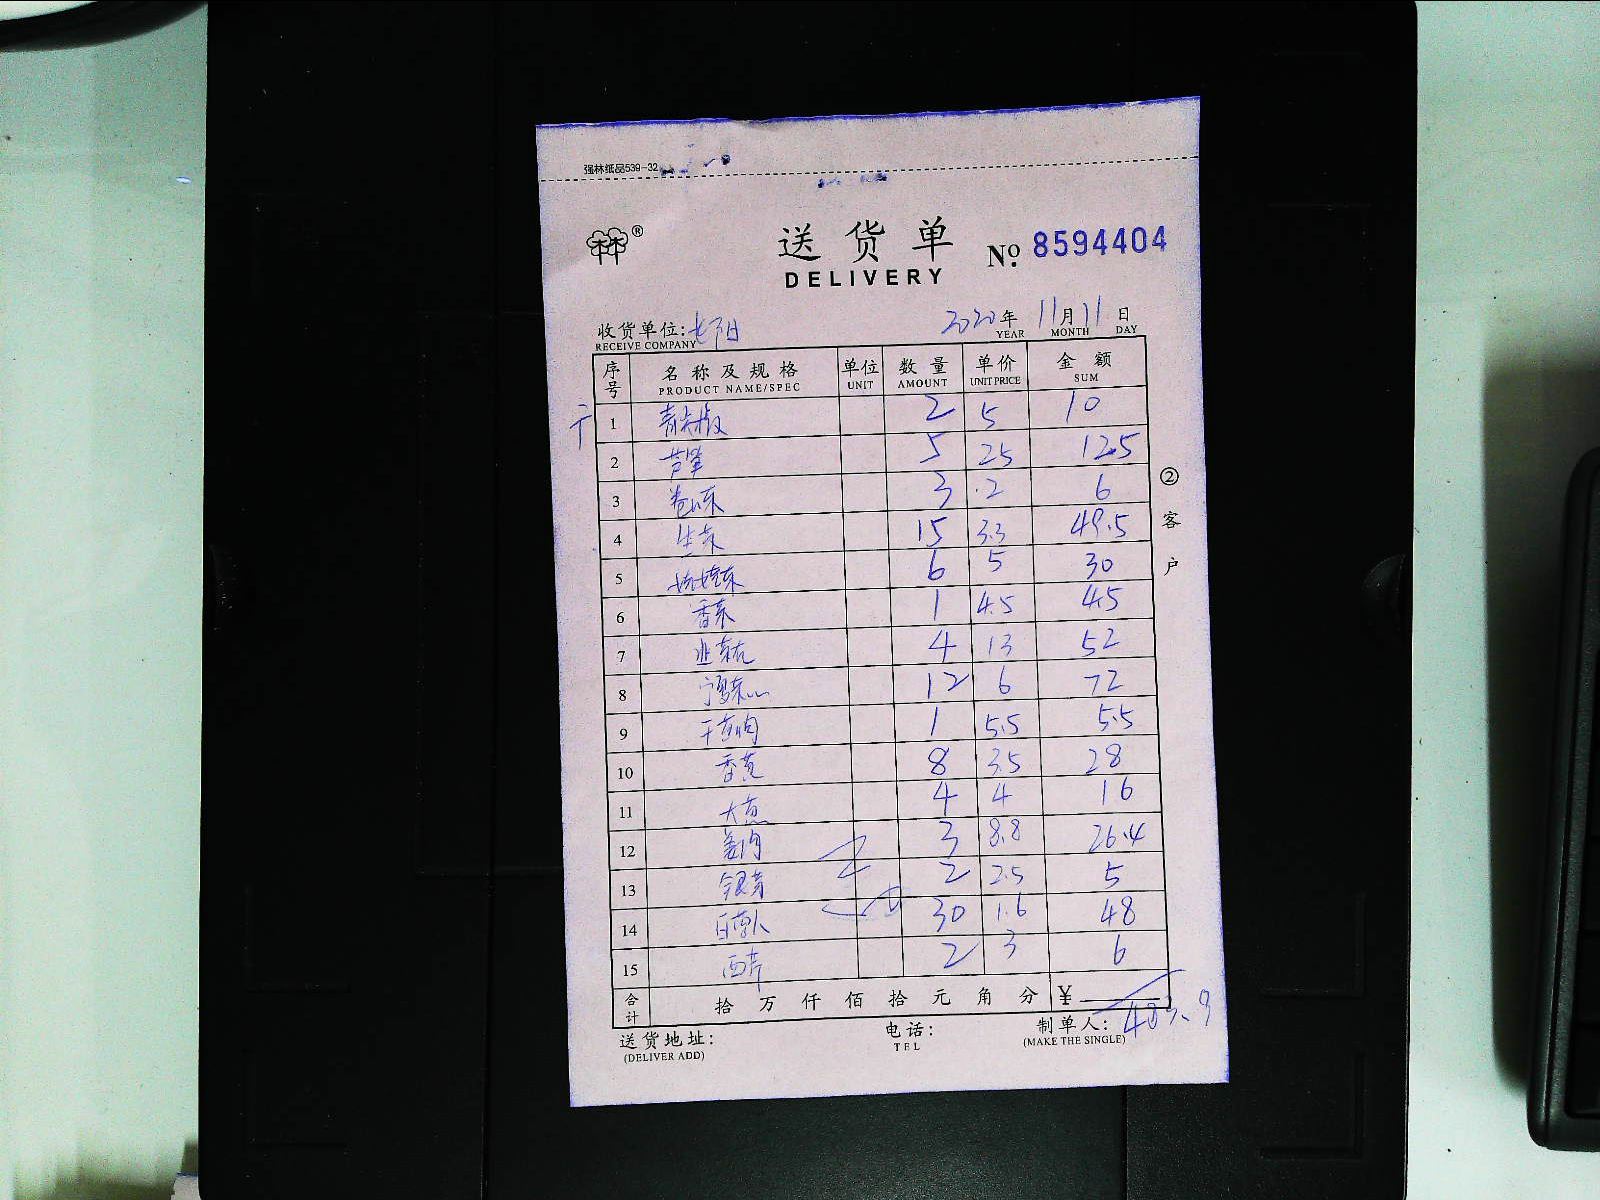 强林纸品539-32
林林®
送货单 № 8594404
DELIVERY
收货单位: 2020年11月11日
RECEIVE COMPANY YEAR MONTH DAY
序号 名称及规格 单位 数量 单价 金额
PRODUCT NAME/SPEC UNIT AMOUNT UNIT PRICE SUM
1 青尖椒 2 5 10
2 芦笋 5 25 125
3 卷心菜 3 2 6
4 生菜 15 3.3 49.5
5 娃娃菜 6 5 30
6 香菜 1 4.5 4.5
7 韭菜 4 13 52
8 12 6 72
9 干葱肉 1 5.5 5.5
10 香芹 8 3.5 28
11 大葱 4 4 16
12 姜肉 3 8.8 26.4
13 银芽 2 2.5 5
14 白 30 1.6 48
15 西芹 2 3 6
合计 拾万仟佰拾元角分 ¥
483.9
② 客户
送货地址: 电话: 制单人:
(DELIVER ADD) TEL (MAKE THE SINGLE)